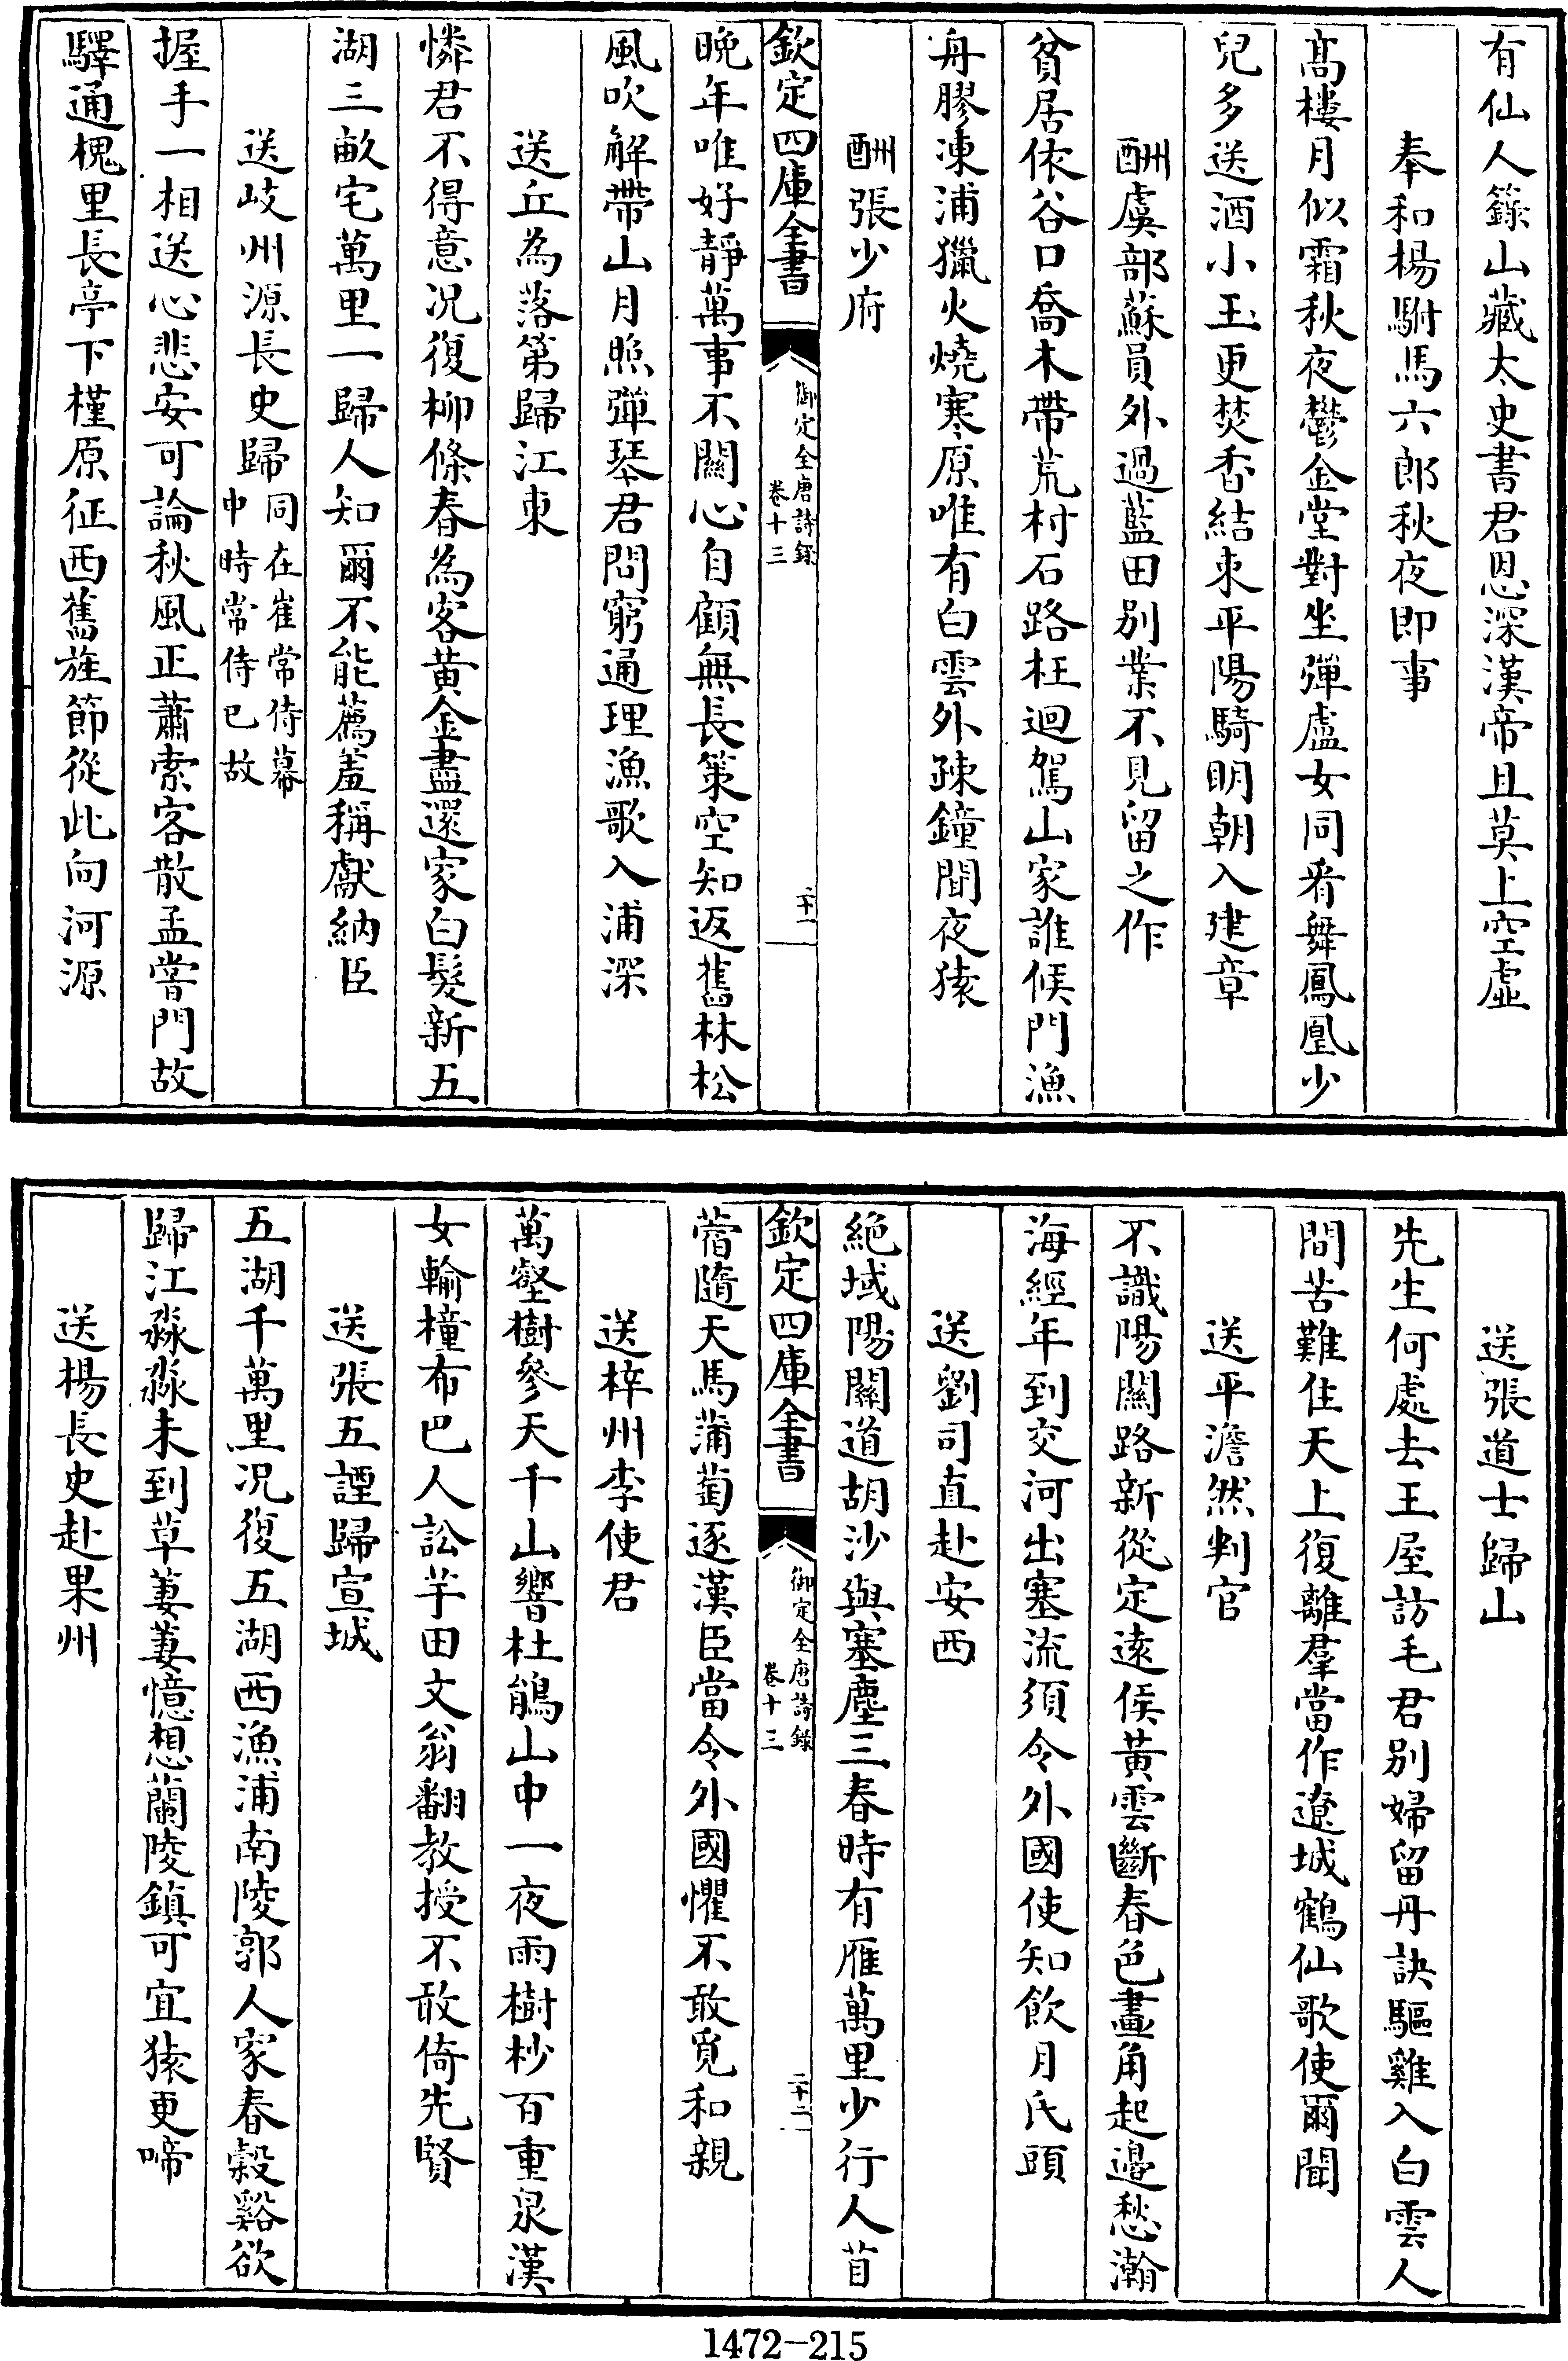 有仙人籙山藏太史書君恩深漢帝且莫上空虛
奉和楊駙馬六郎秋夜即事
髙樓月似霜秋夜鬱金堂對坐彈盧女同看舞鳳凰少
兒多送酒小玉更焚香結束平陽騎明朝入建章
酬虞部蘇員外過藍田别業不見留之作
貧居依谷口喬木帶荒村石路枉迴駕山家誰候門漁
舟膠凍浦獵火燒寒原唯有白雲外疎鐘聞夜猿
酬張少府
欽定四庫全書
御定全唐詩錄
卷十三
二十一
晚年唯好靜萬事不關心自顧無長策空知返舊林松
風吹解帶山月照彈琴君問窮通理漁歌入浦深
送丘為落第歸江東
憐君不得意况復柳條春為客黄金盡還家白髮新五
湖三畝宅萬里一歸人知爾不能薦羞稱獻納臣
送岐州源長史歸
同在崔常侍幕
中時常侍已故
握手一相送心悲安可論秋風正蕭索客散孟嘗門故
驛通槐里長亭下槿原征西舊旌節從此向河源
送張道士歸山
先生何處去王屋訪毛君别婦留丹訣驅雞入白雲人
間苦難住天上復離羣當作遼城鶴仙歌使爾聞
送平澹然判官
不識陽關路新從定遠侯黄雲斷春色畫角起邉愁瀚
海經年到交河出塞流須令外國使知飲月氏頭
送劉司直赴安西
絶域陽關道胡沙與塞塵三春時有雁萬里少行人苜
欽定四庫全書
御定全唐詩錄
卷十三
二十二
蓿隨天馬蒲萄逐漢臣當令外國懼不敢覓和親
送梓州李使君
萬壑樹參天千山響杜鵑山中一夜雨樹杪百重泉漢
女輸橦布巴人訟芋田文翁翻教授不敢倚先賢
送張五諲歸宣城
五湖千萬里况復五湖西漁浦南陵郭人家春穀谿欲
歸江淼淼未到草萋萋憶想蘭陵鎮可宜猿更啼
送楊長史赴果州
1472-215